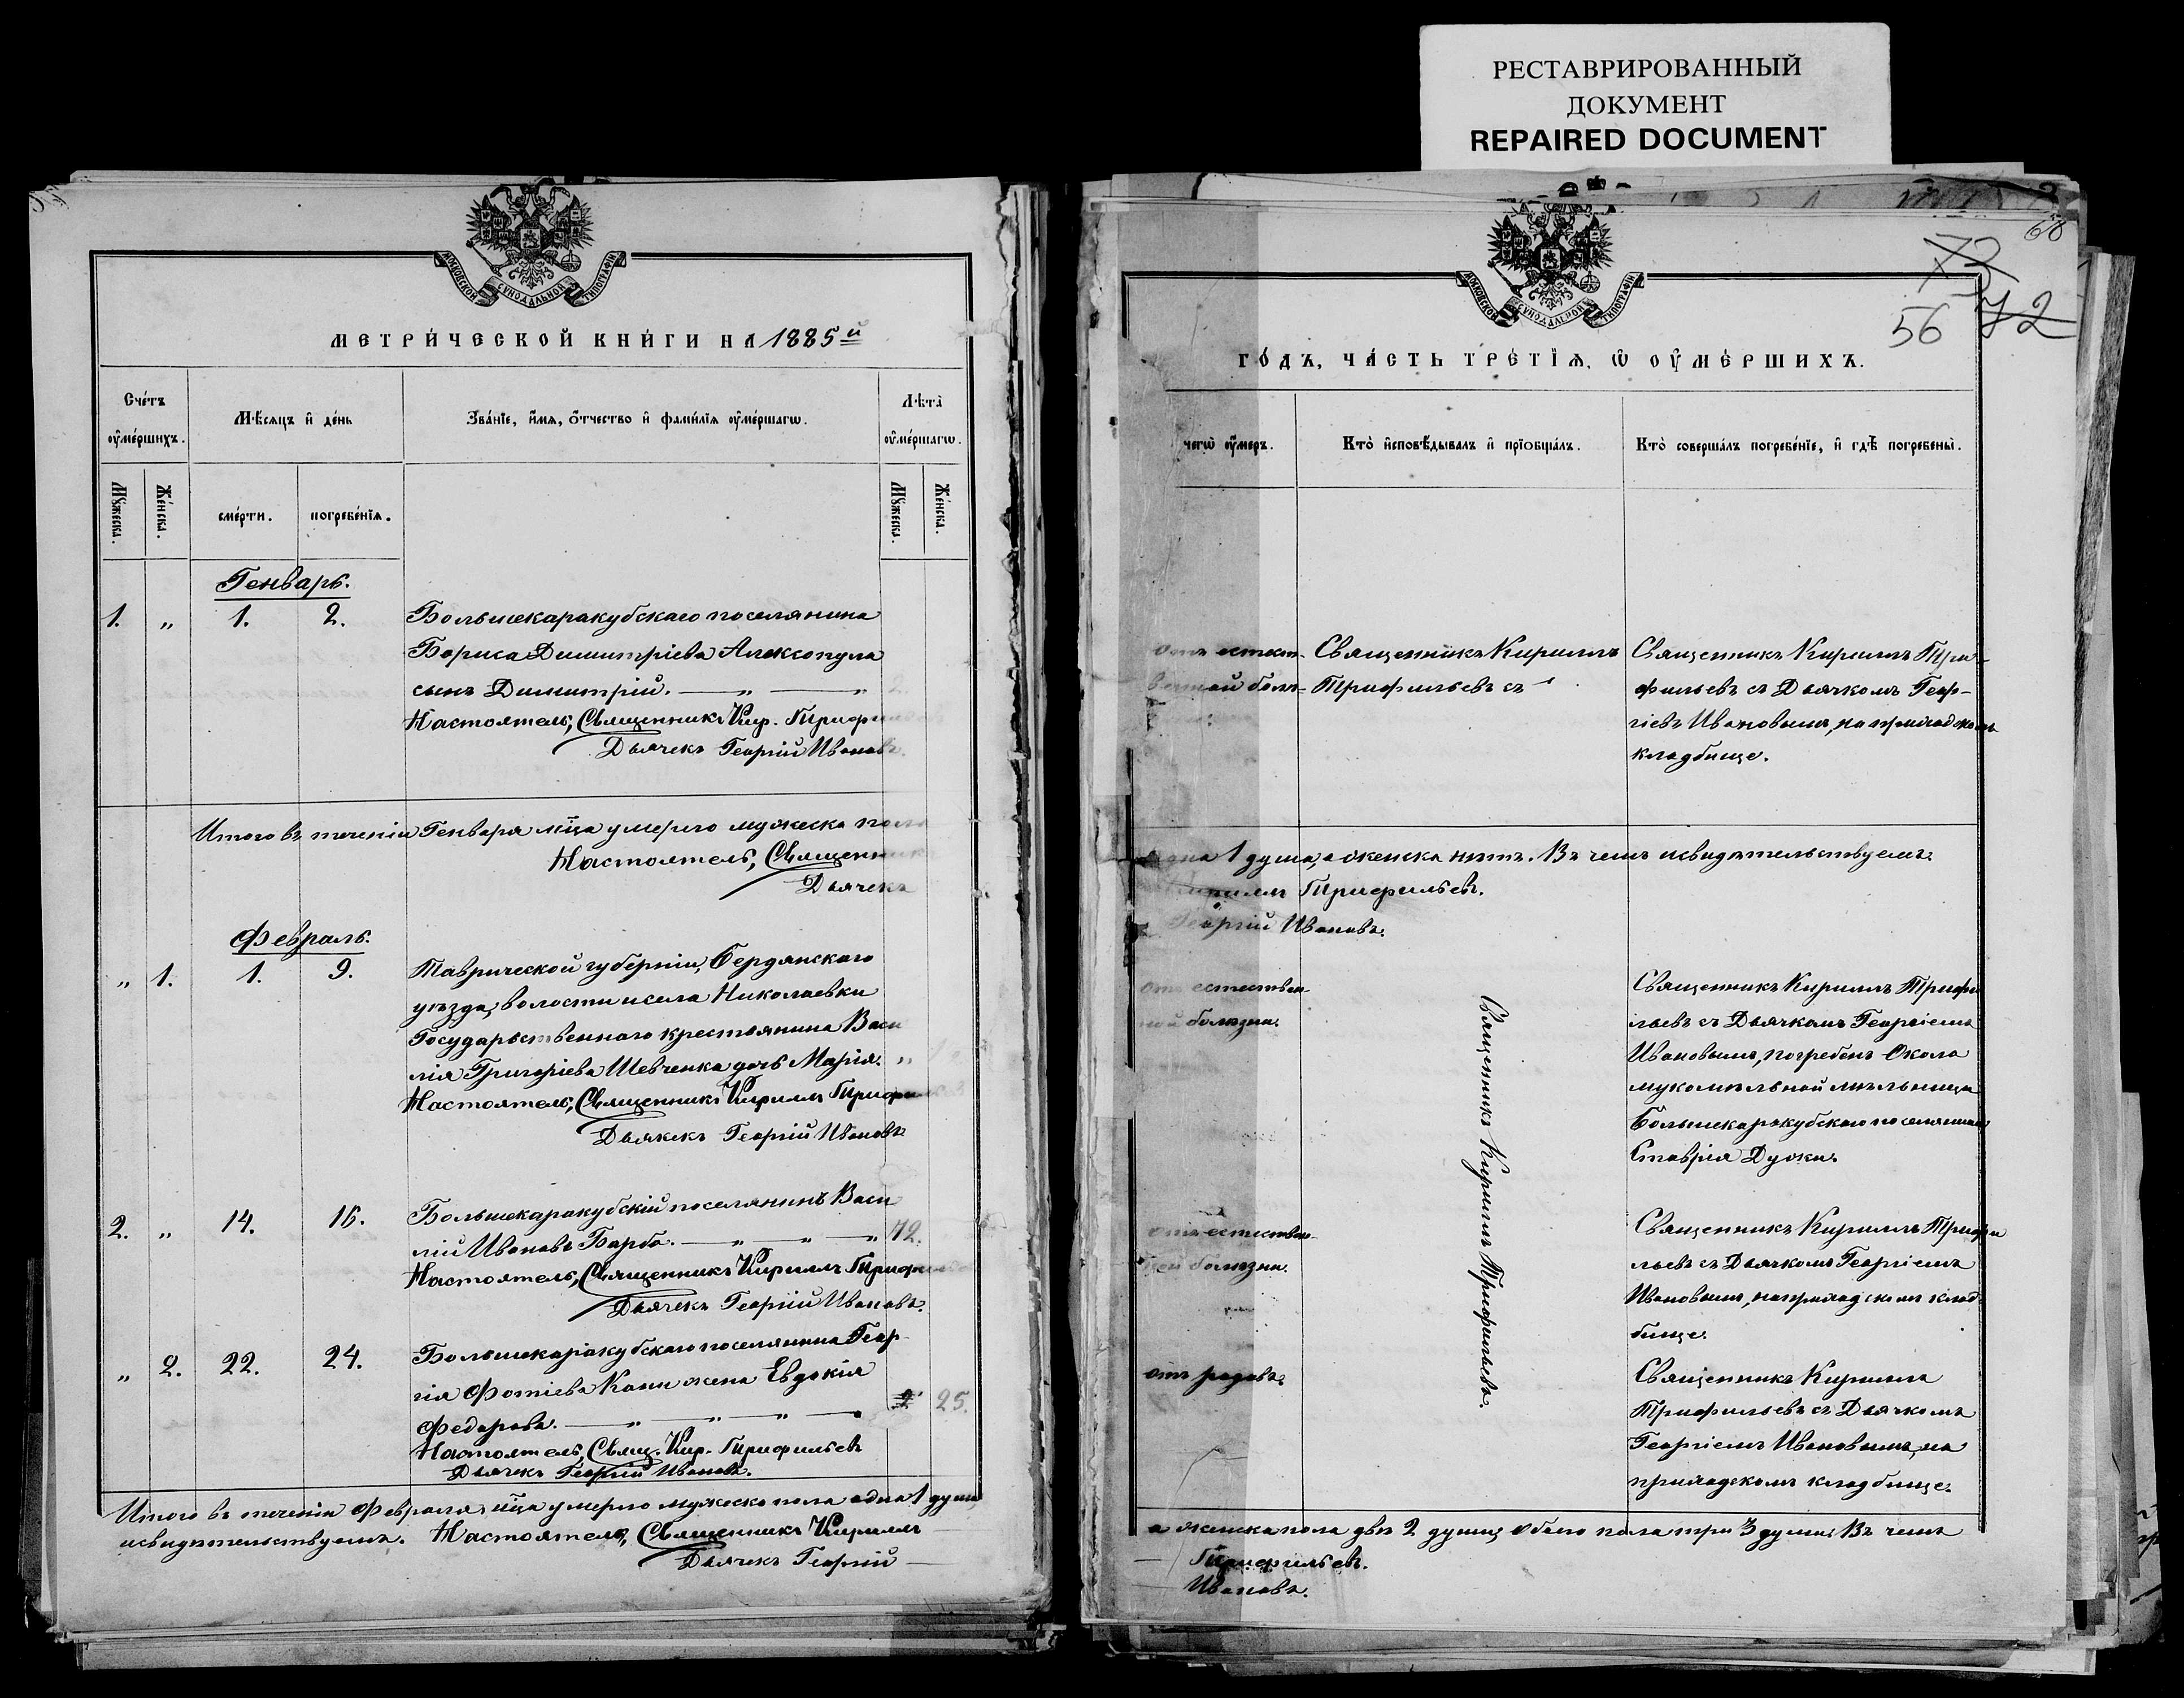 РЕСТАВРИРОВАННЫЙ
ДОКУМЕНТ
REPAIRED DOCUMENT
МОСКОВСКОЙ СѴНОДАЛЬНОЙ ТИПОГРАФІИ
МЕТРИ́ЧЕСКОЙ КНИ́ГИ НА 1885й
Сче́тъ ᲂу҆ме́ршихъ.
Мѣ́сяцъ и҆ де́нь
Зва́нїе, и҆́мѧ, ѻ҆́тчество и҆ фами́лїѧ ᲂу҆ме́ршагѡ.
Лѣта̀ ᲂу҆ме́ршагѡ.
Мꙋ́жеска.
Же́нска.
сме́рти.
погребе́нїѧ.
Мꙋ́жеска.
Же́нска.
Генварь.
1. „ 1. 2. Большекаракубскаго поселянина
Бориса Димитріева Алексопула
сынъ Димитрій. — „ — „ 2.
Настоятель, Священникъ Кир. Трифи
Дьячекъ Георгій Ивановъ.
Итого въ теченіи Генваря мца умерло мужеска пола
Настоятель, Священник
Дьячекъ
Февраль.
„ 1. 1. 9. Таврической губерніи, Бердянскаго
уѣзда, волости и села Николаевки
Государственнаго крестьянина Васи
лія Григоріева Шевченка дочь Марія. „
Настоятель, Священникъ Кириллъ Трифи
Дьячекъ Георгій Ивановъ
2. „ 14. 16. Большекаракубскій поселянинъ Васи
лій Ивановъ Барба. — „ — „ — „ 72.
Настоятель, Священникъ Кириллъ Трифи
Дьячекъ Георгій Ивановъ.
„ 2. 22. 24. Большекаракубскаго поселянина Геор
гія Фотіева Капи жена Евдокія
Федорова. — „ — „ — „ — 25.
Настоятель, Свящ. Кир. Трифильевъ
Дьячекъ Георгій Ивановъ.
Итого въ теченіи Февраля мца умерло мужеска пола одна 1 душа,
исвидѣтельствуемъ. Настоятель, Священникъ Кириллъ
Дьячекъ Георгій —
68
73
56 72
МОСКОВСКОЙ СѴНОДАЛЬНОЙ ТИПОГРАФІИ
ГО́ДЪ, ЧА́СТЬ ТРЕ́ТЇѦ, Ѡ҆ ОУ҆МЕ́РШИХЪ.
чегѡ̀ ᲂу҆́меръ.
Кто̀ и҆сповѣ́дывалъ и҆ прїѻбща́лъ.
Кто̀ соверша́лъ погребе́нїе, и҆ гдѣ̀ погребены̀.
отъ естест- Священникъ Кириллъ Священникъ Кириллъ Три-
венной болѣ- Трифильевъ съ фильевъ съ Дьячкомъ Геор-
гіевъ Ивановымъ, на приходскомъ
кладбище.
одна 1 душа, а женска нѣтъ. Въ чемъ исвидѣтельствуемъ.
Кириллъ Трифильевъ.
Георгій Ивановъ.
отъ естествен- Священникъ Кириллъ Трифи
ной болезни. льевъ съ Дьячкомъ Георгіемъ
Ивановымъ, погребенъ Около
мукомельной мельницы
Большекаракубскаго поселянина
Ставрія Дужи.
Священникъ Кириллъ Трифильевъ.
отъ естествен- Священникъ Кириллъ Трифи
ной болезни. льевъ съ Дьячкомъ Георгіемъ
Ивановымъ, на приходскомъ клад-
бище.
отъ родовъ. Священникъ Кириллъ
Трифильевъ съ Дьячкомъ
Георгіемъ Ивановымъ, на
приходскомъ кладбище.
а женска пола двѣ 2 души, обоего пола три 3 души. Въ чемъ
— Трифильевъ.
— Ивановъ.